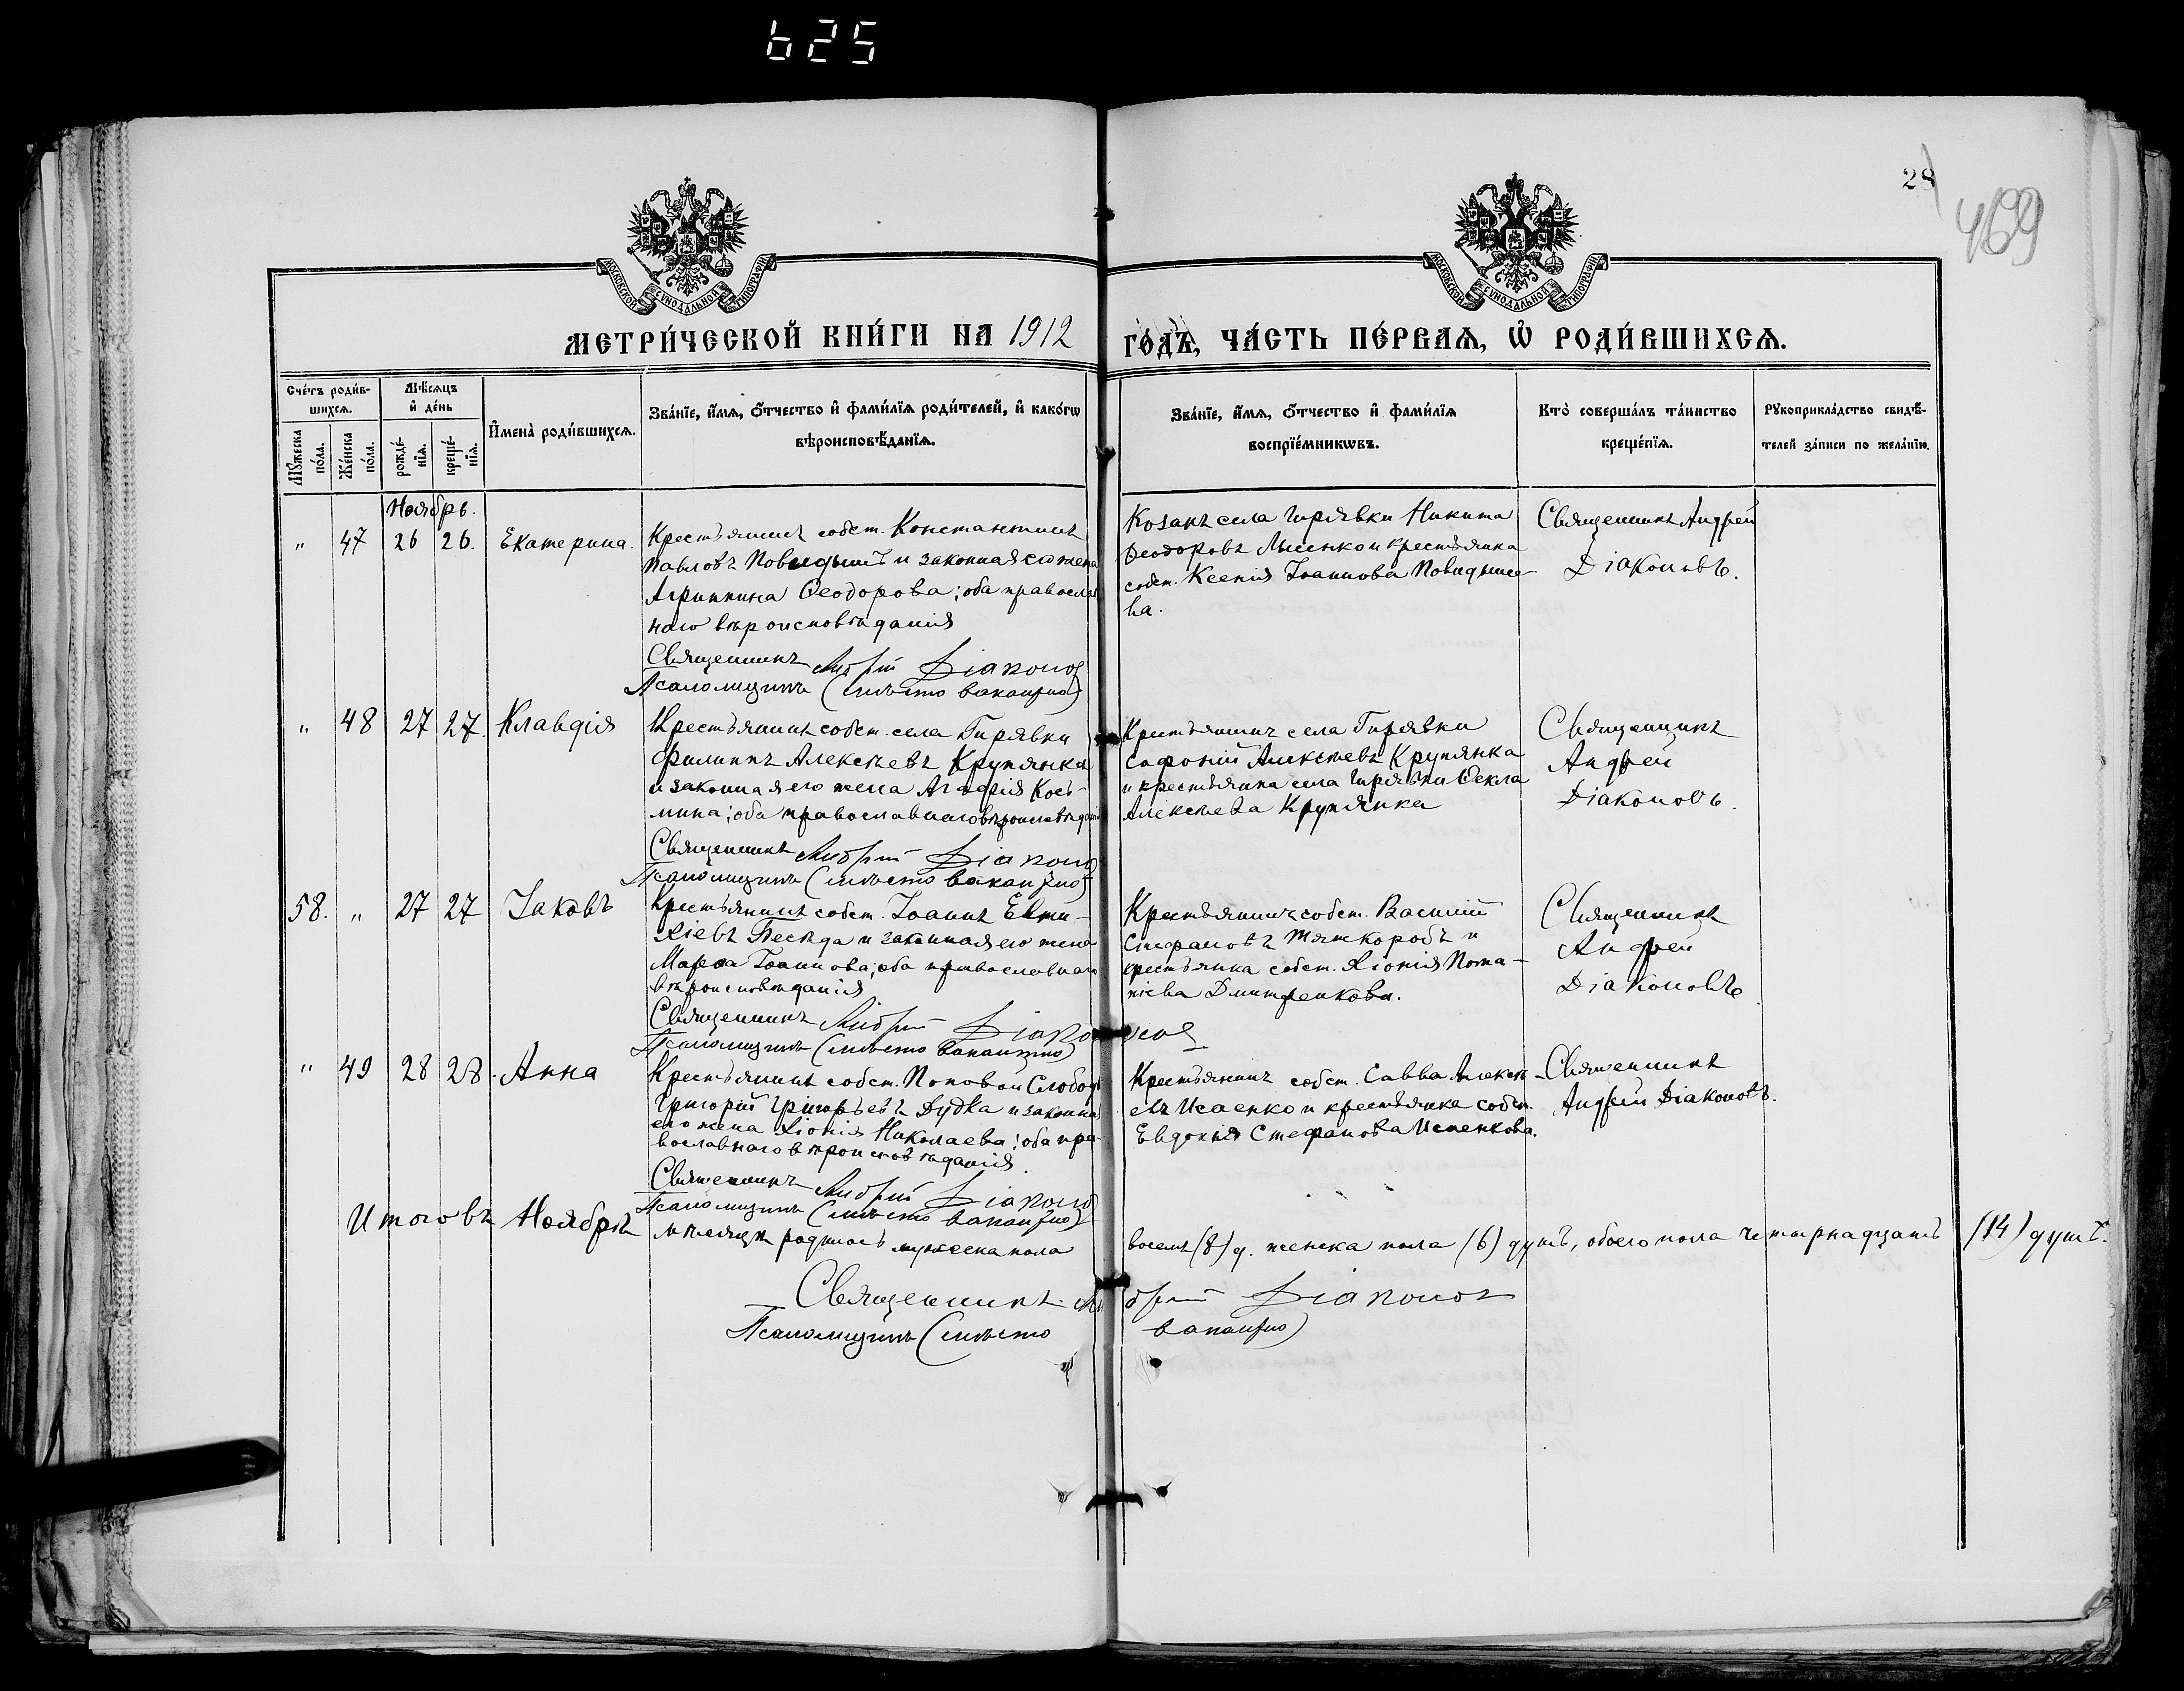 625
28
469
МОСКОВСКОЙ СѴНОДАЛЬНОЙ ТИПОГРАФІИ
МОСКОВСКОЙ СѴНОДАЛЬНОЙ ТИПОГРАФІИ
МЕТРИ́ЧЕСКОЙ КНИ́ГИ НА 1912
ГО́ДЪ, ЧА́СТЬ ПЕ́РВАѦ, Ѡ҆ РОДИ́ВШИХСѦ.
Сче́тъ роди́в-
шихсѧ.
Мѣ́сѧцъ
и҆ де́нь
Мꙋ́жеска
по́ла.
Же́нска
по́ла.
рожде́-
нїѧ.
креще́-
нїѧ.
И҆мена̀ роди́вшихсѧ.
Зва́нїе, и҆́мѧ, ѻ҆́тчество и҆ фами́лїѧ роди́телей, и҆ како́гѡ
вѣроисповѣ́данїѧ.
Зва́нїе, и҆́мѧ, ѻ҆́тчество и҆ фами́лїѧ
воспрїе́мникѡвъ.
Кто̀ соверша́лъ та́инство
креще́нїѧ.
Рꙋкоприкла́дство свидѣ́-
телей за́писи по жела́нїю.
Ноябрь.
" 47 26 26. Екатерина.
Крестьянинъ собст. Константинъ
Павловъ Повидышъ и законная его жена
Агриппина Ѳеодорова; оба православ
наго вѣроисповѣданія
Священникъ Андрей Діаконов
Псаломщикъ (мѣсто вакантно)
Козакъ села Гирявки Никита
Ѳеодоровъ Лысенко и крестьянка
собст. Ксенія Іоаннова Повидыше
ва.
Священникъ Андрей
Діаконовъ.
" 48 27 27. Клавдія
Крестьянинъ собст. села Гирявки
Филиппъ Алексѣевъ Крупянка
и законная его жена Агафія Кось-
мина; оба православнаго вѣроисповѣдані
Священникъ Андрей Діаконо
Псаломщикъ (мѣсто вакантно)
Крестьянинъ села Гирявки
Софоній Алексѣевъ Крупянка
и крестьянка села Гирявки Ѳекла
Алексѣева Крупянка
Священникъ
Андрей
Діаконовъ.
58. " 27 27 Іаковъ
Крестьянинъ собст. Іоаннъ Евти-
хіевъ Бесѣда и законная его жена
Марѳа Іоаннова; оба православнаг
вѣроисповѣданія
Священникъ Андрей Діаконов
Псаломщикъ (мѣсто вакантно)
Крестьянинъ собст. Василій
Стефановъ Тяткоробъ и
крестьянка собст. Хіонія Пота-
піева Дмитренкова.
Священникъ
Андрей
Діаконовъ
" 49 28 28. Анна
Крестьянинъ собст. Поповой Слобод
Григорій Григорьевъ Дудка и законна
его жена Хіонія Николаева; оба пра-
вославнаго вѣроисповѣданія.
Священникъ Андрей Діаконо
Псаломщикъ (мѣсто вакантно)
Крестьянинъ собст. Савва Алексѣ-
евъ Исаенко и крестьянка собст.
Евдокія Стефанова Исаенкова.
Священникъ
Андрей Діаконовъ.
Итого въ Ноябрѣ мѣсяцѣ родилось мужеска пола восемь (8) д. женска пола (6) душъ, обоего пола четырнадцать (14) душъ.
Священникъ Андрей Діаконов
Псаломщикъ (мѣсто вакантно)